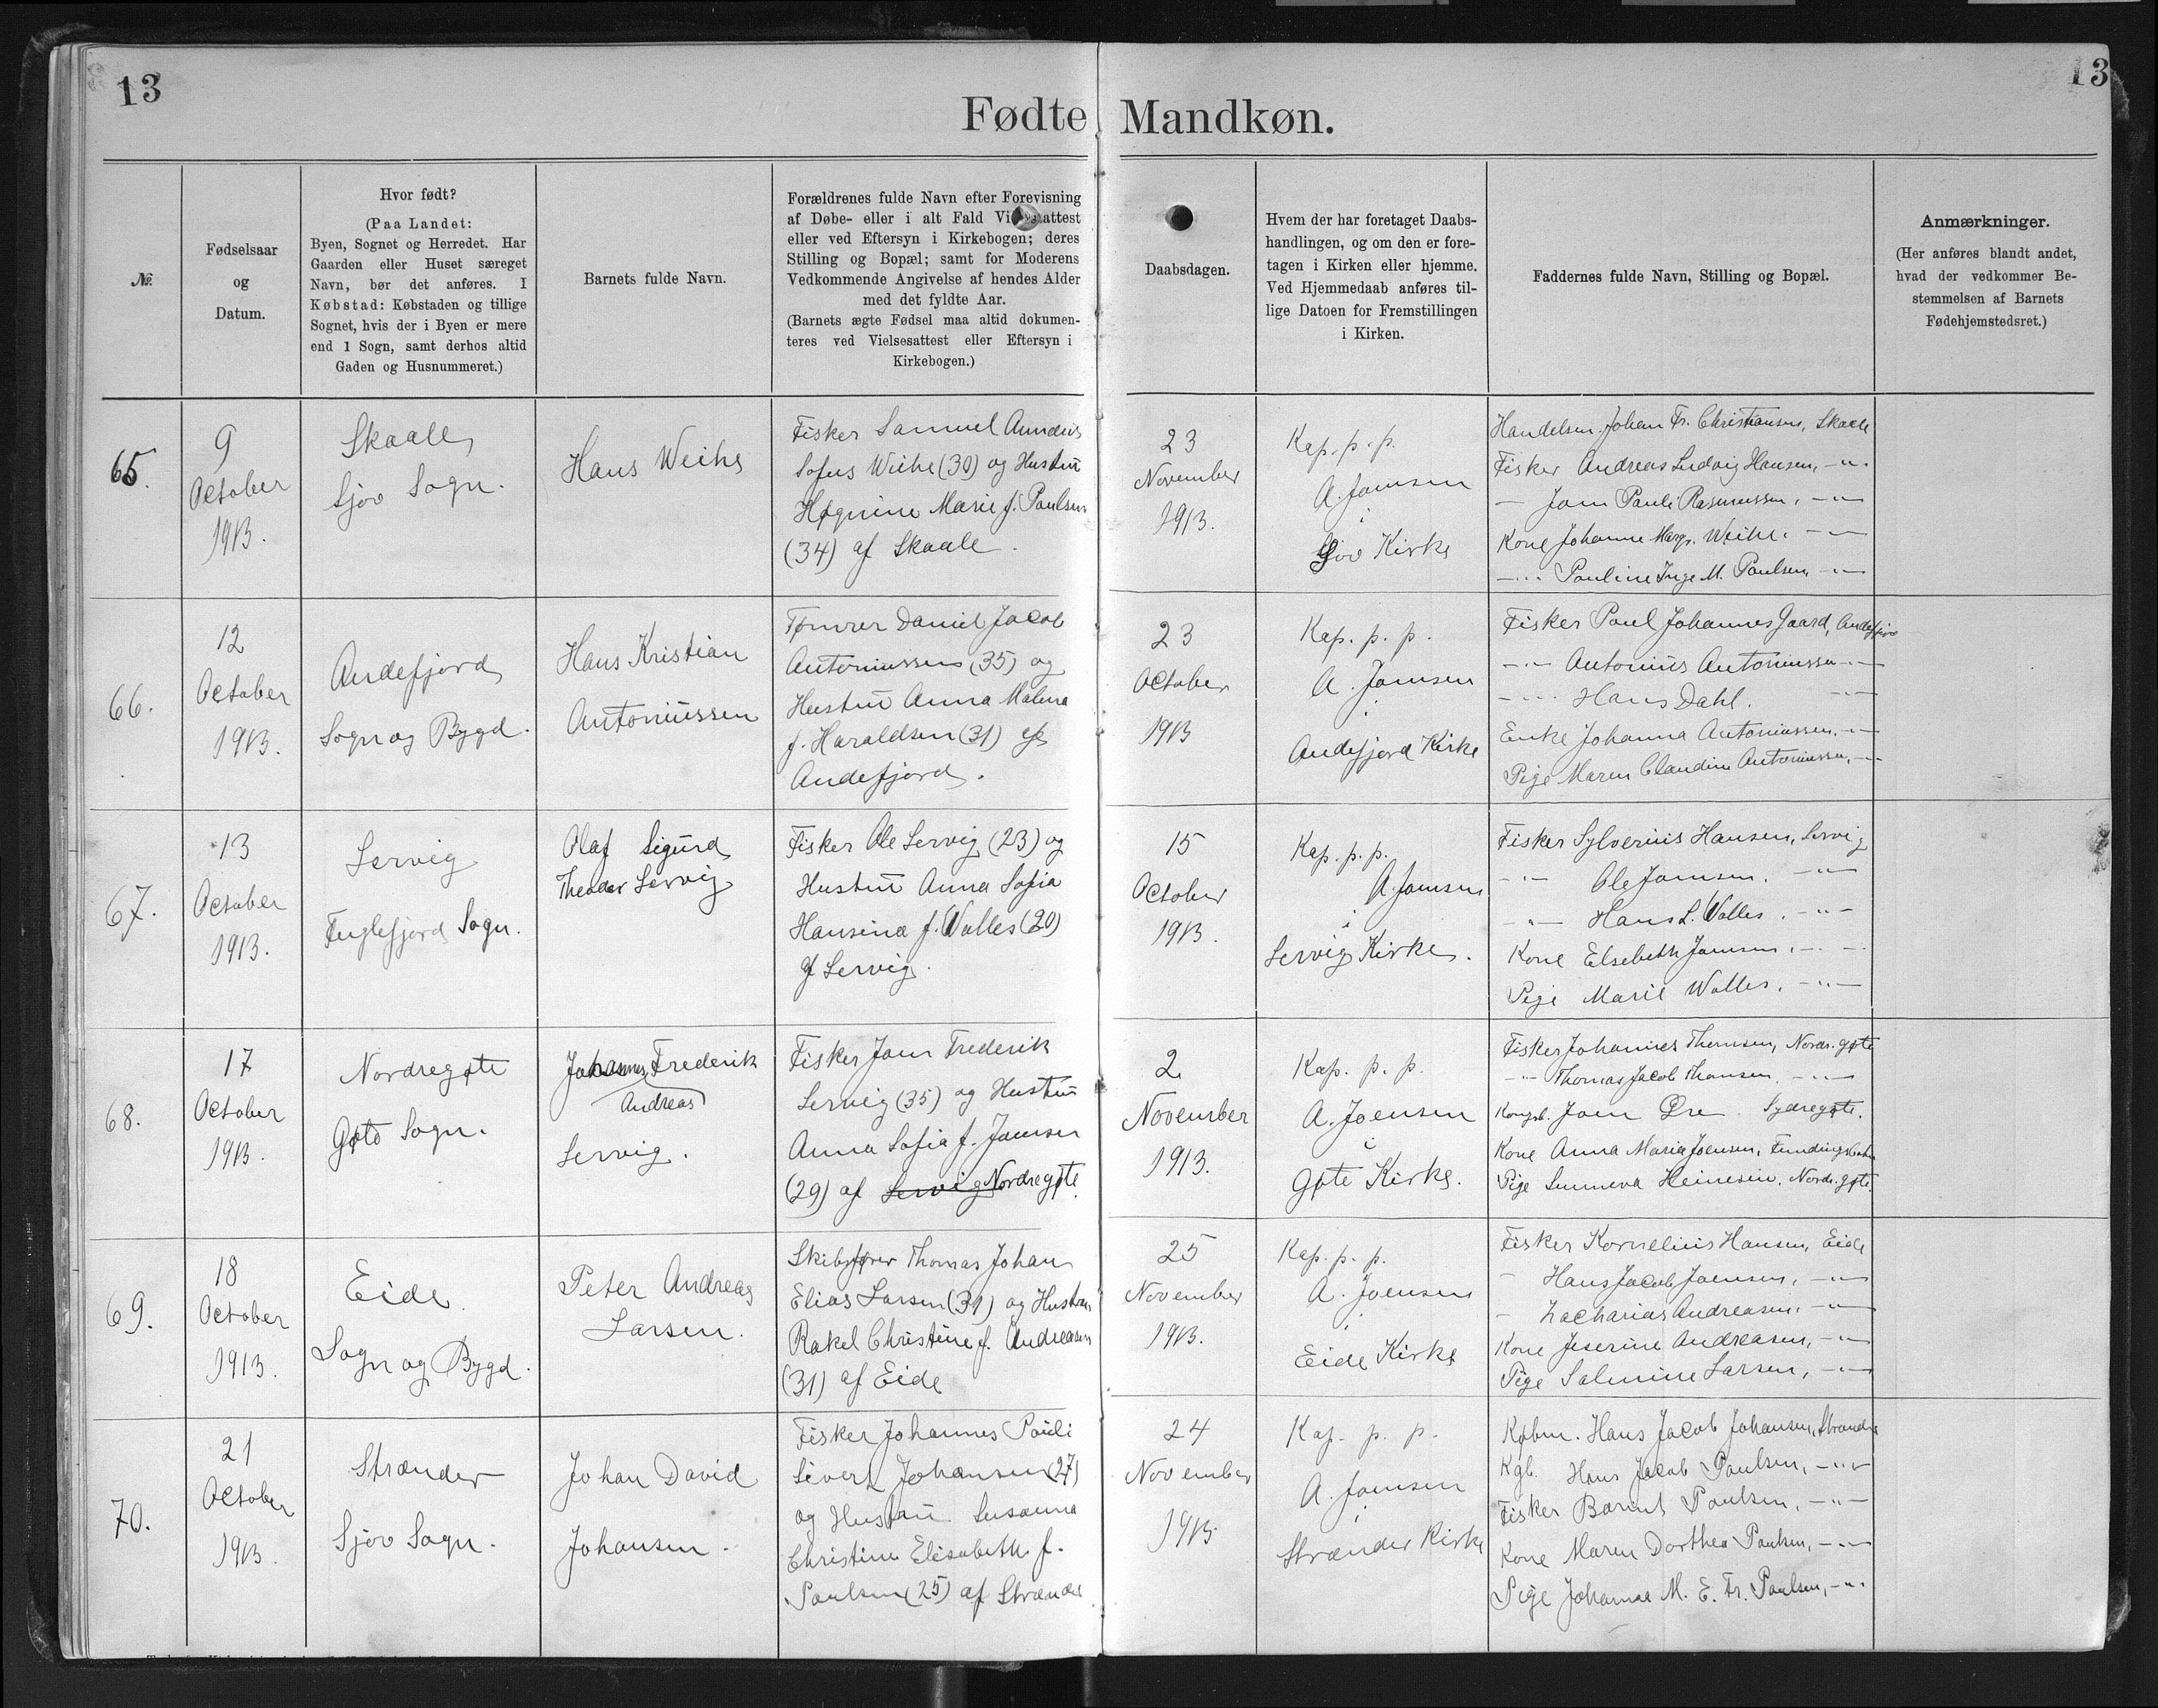 13
13
Fødte Mandkøn.
№.
Fødselsaar
og
Datum.
Hvor født?
(Paa Landet:
Byen, Sognet og Herredet. Har
Gaarden eller Huset særeget
Navn, bør det anføres. I
Købstad: Købstaden og tillige
Sognet, hvis der i Byen er mere
end 1 Sogn, samt derhos altid
Gaden og Husnummeret.)
Barnets fulde Navn.
Forældrenes fulde Navn efter Forevisning
af Døbe- eller i alt Fald Vielsesattest
eller ved Eftersyn i Kirkebogen; deres
Stilling og Bopæl; samt for Moderens
Vedkommende Angivelse af hendes Alder
med det fyldte Aar.
(Barnets ægte Fødsel maa altid dokumen-
teres ved Vielsesattest eller Eftersyn i
Kirkebogen.)
Daabsdagen.
Hvem der har foretaget Daabs-
handlingen, og om den er fore-
tagen i Kirken eller hjemme.
Ved Hjemmedaab anføres til-
lige Datoen for Fremstillingen
i Kirken.
Faddernes fulde Navn, Stilling og Bopæl.
Anmærkninger.
(Her anføres blandt andet,
hvad der vedkommer Be-
stemmelsen af Barnets
Fødehjemstedsret.)
65.
9
October
1913.
Skaale
Sjov Sogn.
Hans Weihe
Fisker Samuel
Sofus Weihe (30) og Hustru
Høgnine Marie f. Paulsen
(34) af Skaale.
23
November
1913.
Kap. p. p.
A. Joensen
i
Sjov Kirke
Handelsm. Johan Fr. Christiansen, Skaale
Fisker Andreas Ludvig Hansen, -"-
- Joen Pauli Rasmussen, -"-
Kone Johanne Marg. Weihe. -"-
-"- Pauline Inge M. Paulsen, -"-
66.
12
October
1913.
Andefjord
Sogn og Bygd.
Hans Kristian
Antoniussen
Tømrer Daniel Jacob
Antoniussen (35) og
Hustru Anna Malena
f. Haraldsen (31) af
Andefjord.
23
October
1913
Kap. p. p.
A. Joensen
i
Andefjord Kirke
Fisker Poul Johannes Gaard, Andefjord
-"- Antonius Antoniussen -"-
-"- Hans Dahl. -"-
Enke Johanna Antoniussen, -"-
Pige Maren Claudine Antoniussen, -"-
67.
13
October
1913.
Lervig
Fuglefjord Sogn.
Olaf Sigurd
Theodor Lervig
Fisker Ole Lervig (23) og
Hustru Anna Sofia
Hansina f. Walles (20)
af Lervig.
15
October
1913.
Kap. p. p.
A. Joensen
i
Lervig Kirke.
Fisker Sylverius Hansen, Lervig
-"- Ole Joensen. -"-
-"- Hans L. Walles. -"-
Kone Elsebeth Joensen, -"-
Pige Marie Walles. -"-
68.
17
October
1913.
Nordregøte
Gøte Sogn.
Johannes Frederik
Andreas
Lervig.
Fisker Joen Frederik
Lervig (35) og Hustru
Anna Sofia f. Joensen
(29) af Lervig Nordregøte.
2
November
1913.
Kap. p. p.
A. Joensen
i
Gøte Kirke.
Fisker Johannes Thomsen, Nordr. gøte
-"- Thomas Jacob Thomsen. -"-
Kongsb. Joen Øre. Sydregøte.
Kone Anna Maria Joensen,
Pige Sunneva Heinesen, Nordr. gøte.
69.
18
October
1913.
Eide
Sogn og Bygd.
Peter Andreas
Larsen.
Skibsfører Thomas Johan
Elias Larsen (31) og Hustru
Rakel Christine f. Andreasen
(31) af Eide
25
November
1913.
Kap. p. p.
A. Joensen
i
Eide Kirke
Fisker Kornelius Hansen, Eide
- Hans Jacob Joensen, -"-
- Zacharias Andreasen. -"-
Kone Jeserine Andreasen, -"-
Pige Salmine Larsen, -"-
70.
21
October
1913.
Strænder
Sjov Sogn.
Johan David
Johansen.
Fisker Johannes Pauli
Sivert Johansen (27)
og Hustru Susanna
Christine Elisabeth f.
Poulsen (25) af Strænder
24
November
1913.
Kap. p. p.
A. Joensen
i
Strænder Kirke
Købm. Hans Jacob Johansen, Strænder
Kgb. Hans Jacob Poulsen, -"-
Fisker Poulsen, -"-
Kone Maren Dorthea Poulsen, -"-
Pige Johanna M. E. Fr. Poulsen, -"-